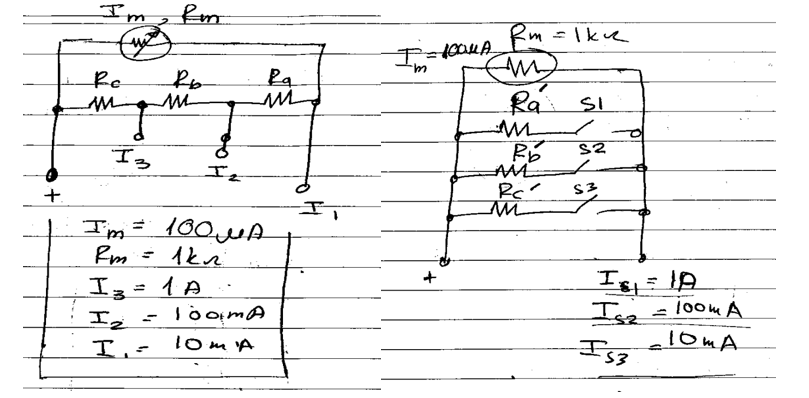 Im, Rm
Rc Rb Ra
I3 I2 I1
+
Im = 100 μA
Rm = 1kΩ
I3 = 1A
I2 = 100mA
I1 = 10mA
Rm = 1kΩ
Im = 100μA
Ra' S1
Rb' S2
Rc' S3
+
IS1 = 1A
IS2 = 100mA
IS3 = 10mA